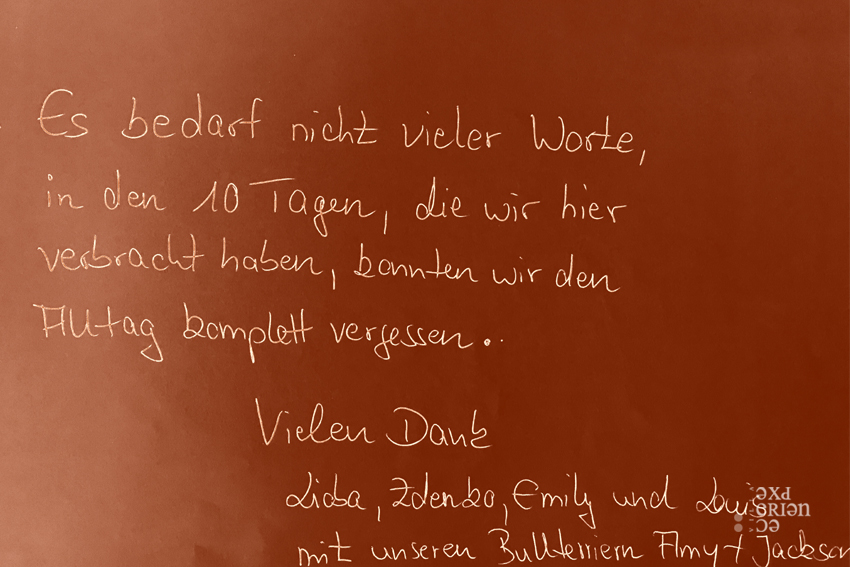 Es bedarf nicht vieler Worte,
in den 10 Tagen, die wir hier
verbracht haben, konnten wir den
Alltag komplett vergessen..
Vielen Dank
Zdenko, Emily und Luis
mit unseren Bullterriern Amy + Jackson